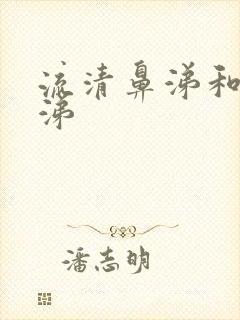 流清鼻涕和
涕
潘志明